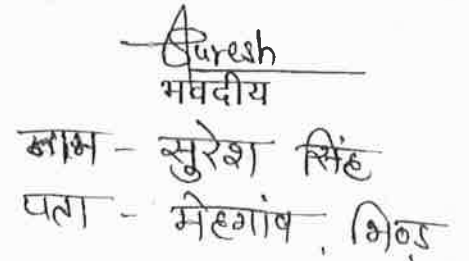 Suresh
भवदीय
नाम - सुरेश सिंह
पता - मेहगांव, भिण्ड